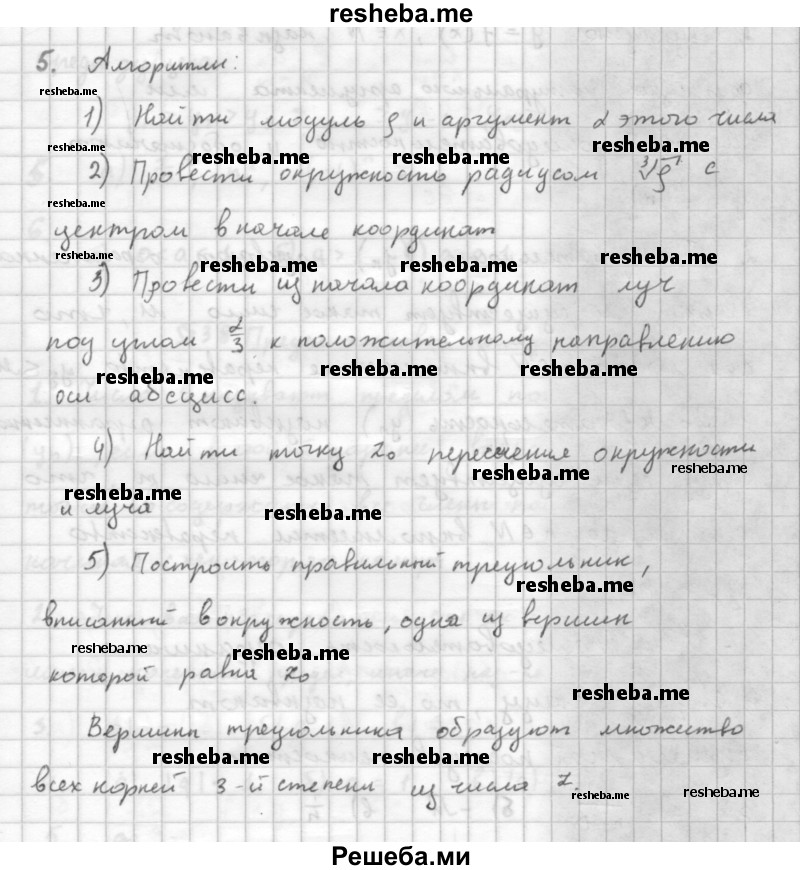 resheba.me
5. Алгоритм:
resheba.me
1) Найти модуль ρ и аргумент α этого числа
resheba.me resheba.me resheba.me resheba.me
2) Провести окружность радиусом ∛ρ с
resheba.me
центром в начале координат
resheba.me resheba.me resheba.me resheba.me
3) Провести из начала координат луч
под углом α/3 к положительному направлению
resheba.me resheba.me resheba.me
оси абсцисс.
4) Найти точку z₀ пересечения окружности
resheba.me resheba.me
resheba.me resheba.me
и луча
5) Построить правильный треугольник,
resheba.me
вписанный в окружность, одна из вершин
resheba.me resheba.me
которой равна z₀
resheba.me
Вершины треугольника образуют множество
resheba.me resheba.me
всех корней 3-й степени из числа z.
resheba.me resheba.me
Решеба.ми